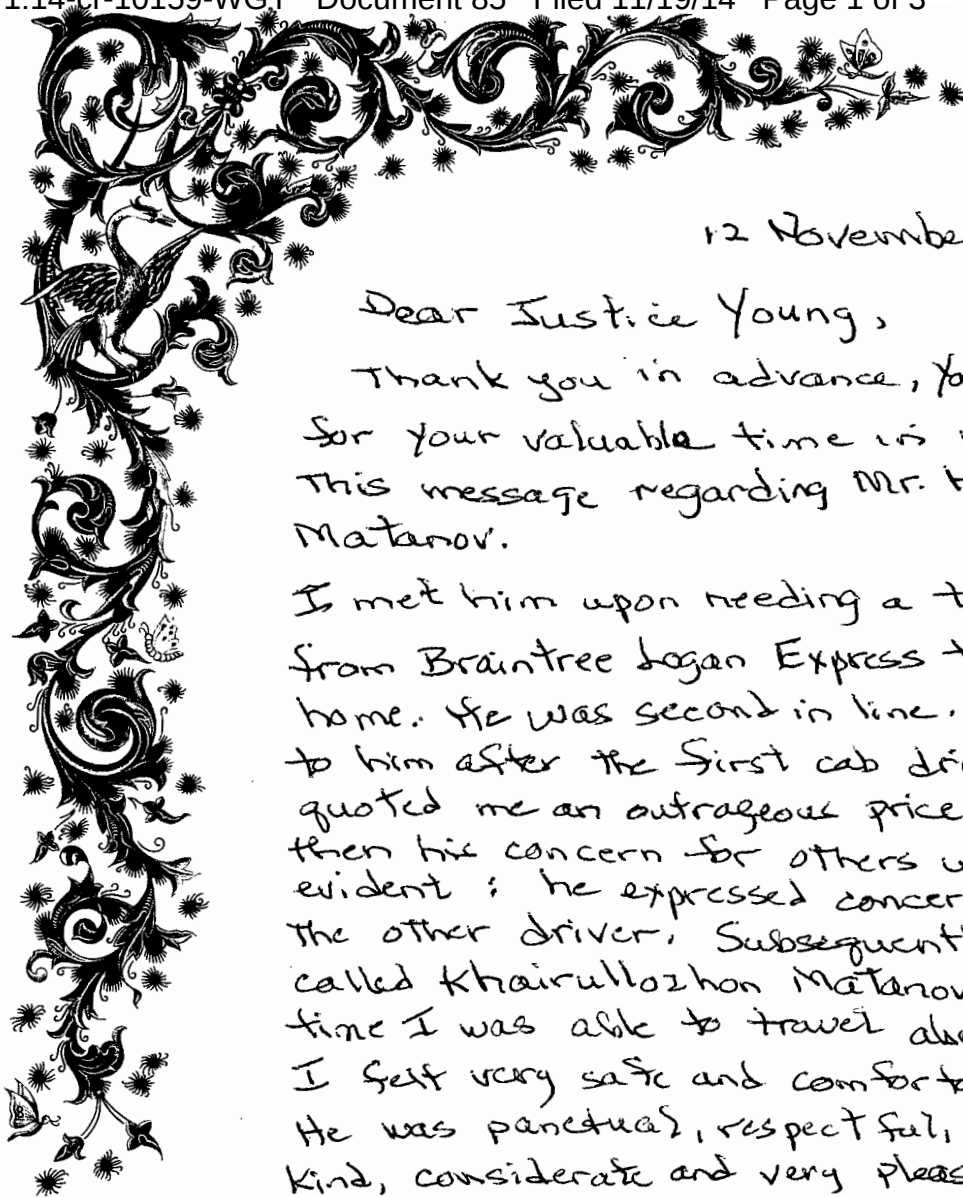 1:14-cr-10159-WGY Document 85 Filed 11/19/14 Page 1 of 3
12 Novembe
Dear Justice Young,
Thank you in advance, Yo
for your valuable time in
This message regarding Mr. K
Matanov.
I met him upon needing a t
from Braintree Logan Express t
home. He was second in line.
to him after the first cab dri
quoted me an outrageous price
then his concern for others w
evident : he expressed concer
the other driver. Subsequent
called Khairullozhon Matanov
time I was able to travel
I felt very safe and comforta
He was punctual, respectful,
kind, considerate and very pleas